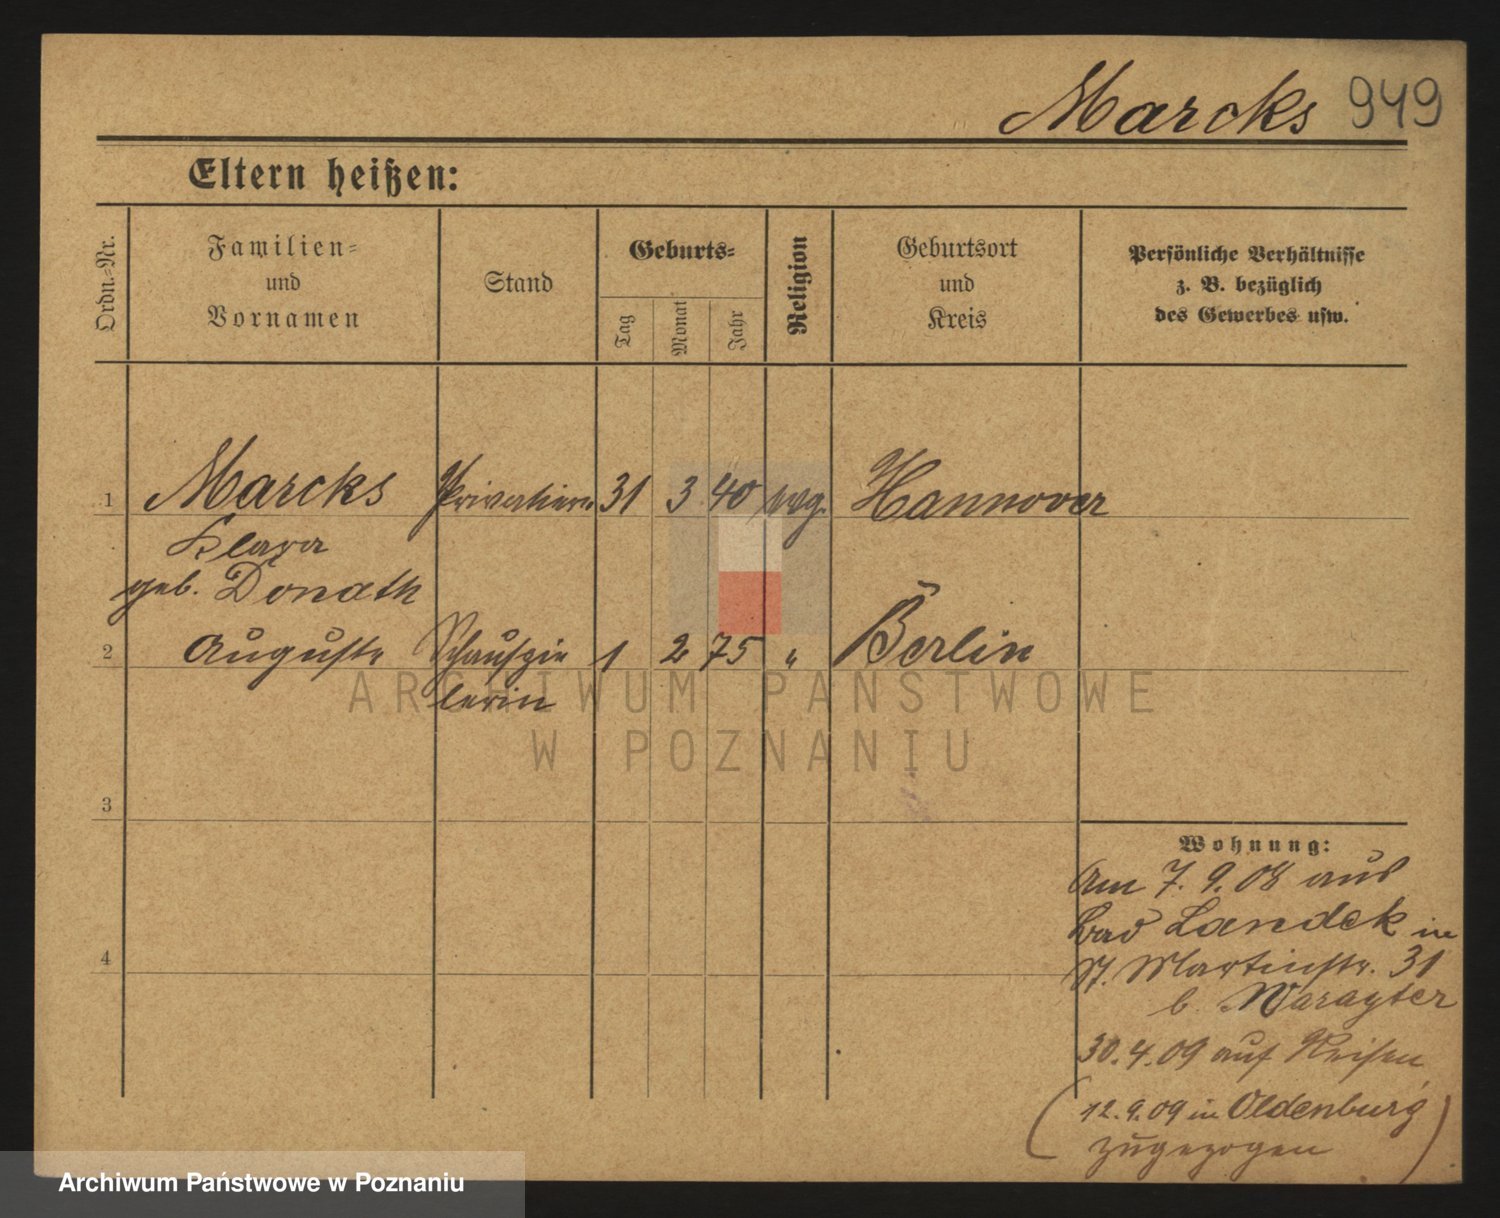 Marcks 949
Eltern heißen:
Ordn.=Nr.
Familien=
und
Vornamen
Stand
Geburts=
Tag
Monat
Jahr
Religion
Geburtsort
und
Kreis
Persönliche Verhältnisse
z. B. bezüglich
des Gewerbes usw.
1 Marcks Privatiere 31 3 40 evg. Hannover
Klara
geb. Donath
2 Auguste Schauspie 1 2 75 " Berlin
lerin
ARCHIWUM PAŃSTWOWE
W POZNANIU
3
4
Wohnung:
Am 7. 9. 08 aus
Bad Landek in
St. Martinstr. 31
b.
30. 4. 09 auf Reisen
(12. 9. 09 in Oldenburg
zugezogen)
Archiwum Państwowe w Poznaniu